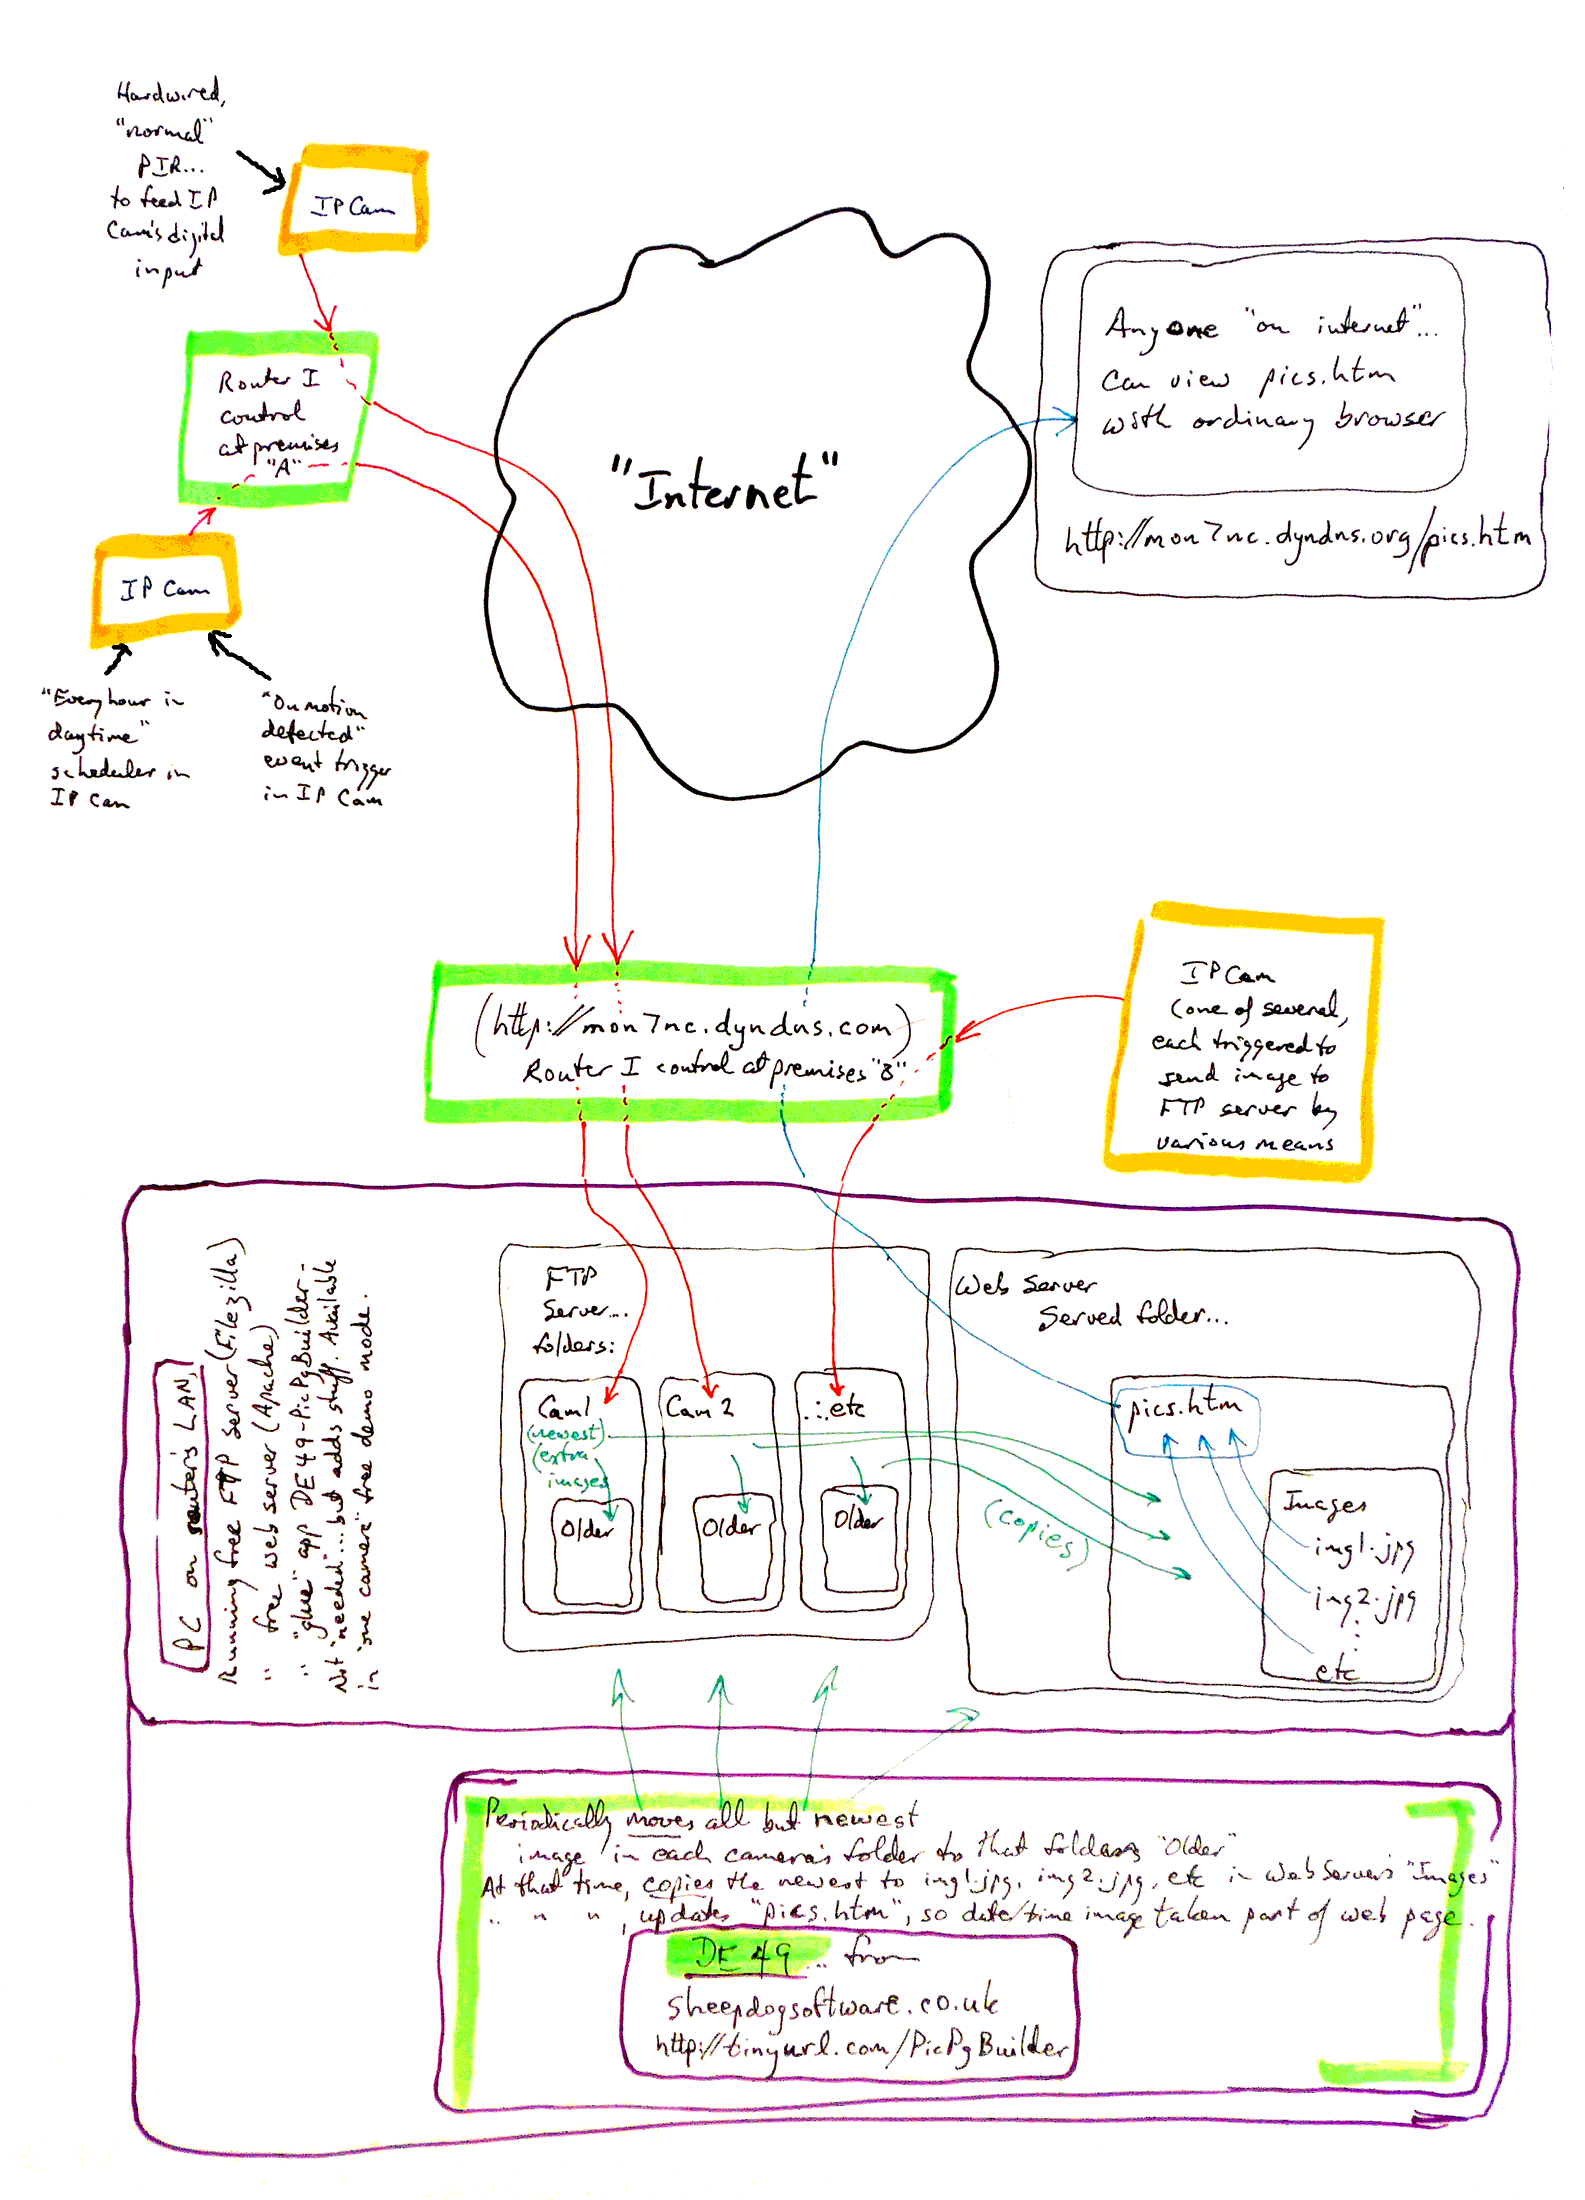 Hardwired,
"normal"
PIR...
to feed IP
Cam's digital
input
IP Cam
Router I
control
at premises
"A"
IP Cam
"Every hour in
daytime"
scheduler in
IP Cam
"On motion
detected"
event trigger
in IP Cam
"Internet"
Anyone "on internet"...
can view pics.htm
with ordinary browser
http://mon7nc.dyndns.org/pics.htm
(http://mon7nc.dyndns.com)
Router I control at premises "B"
IP Cam
(one of several,
each triggered to
send image to
FTP server by
various means
PC on router's LAN,
Running free FTP server (Filezilla)
" free web server (Apache)
" "glue" app DE49-PicPgBuilder -
Not "needed"... but adds stuff. Available
in "one camera" free demo mode.
FTP
Server...
folders:
Cam1
(newest)
(extra
images
Older
Cam 2
Older
...etc
Older
(copies)
Web Server
Served folder...
pics.htm
Images
img1.jpg
img2.jpg
etc
Periodically moves all but newest
image in each camera's folder to that folder's "Older"
At that time, copies the newest to img1.jpg, img2.jpg, etc in WebServer's "Images"
" " ", updates "pics.htm", so date/time image taken part of web page.
DE49... from
sheepdogsoftware.co.uk
http://tinyurl.com/PicPgBuilder